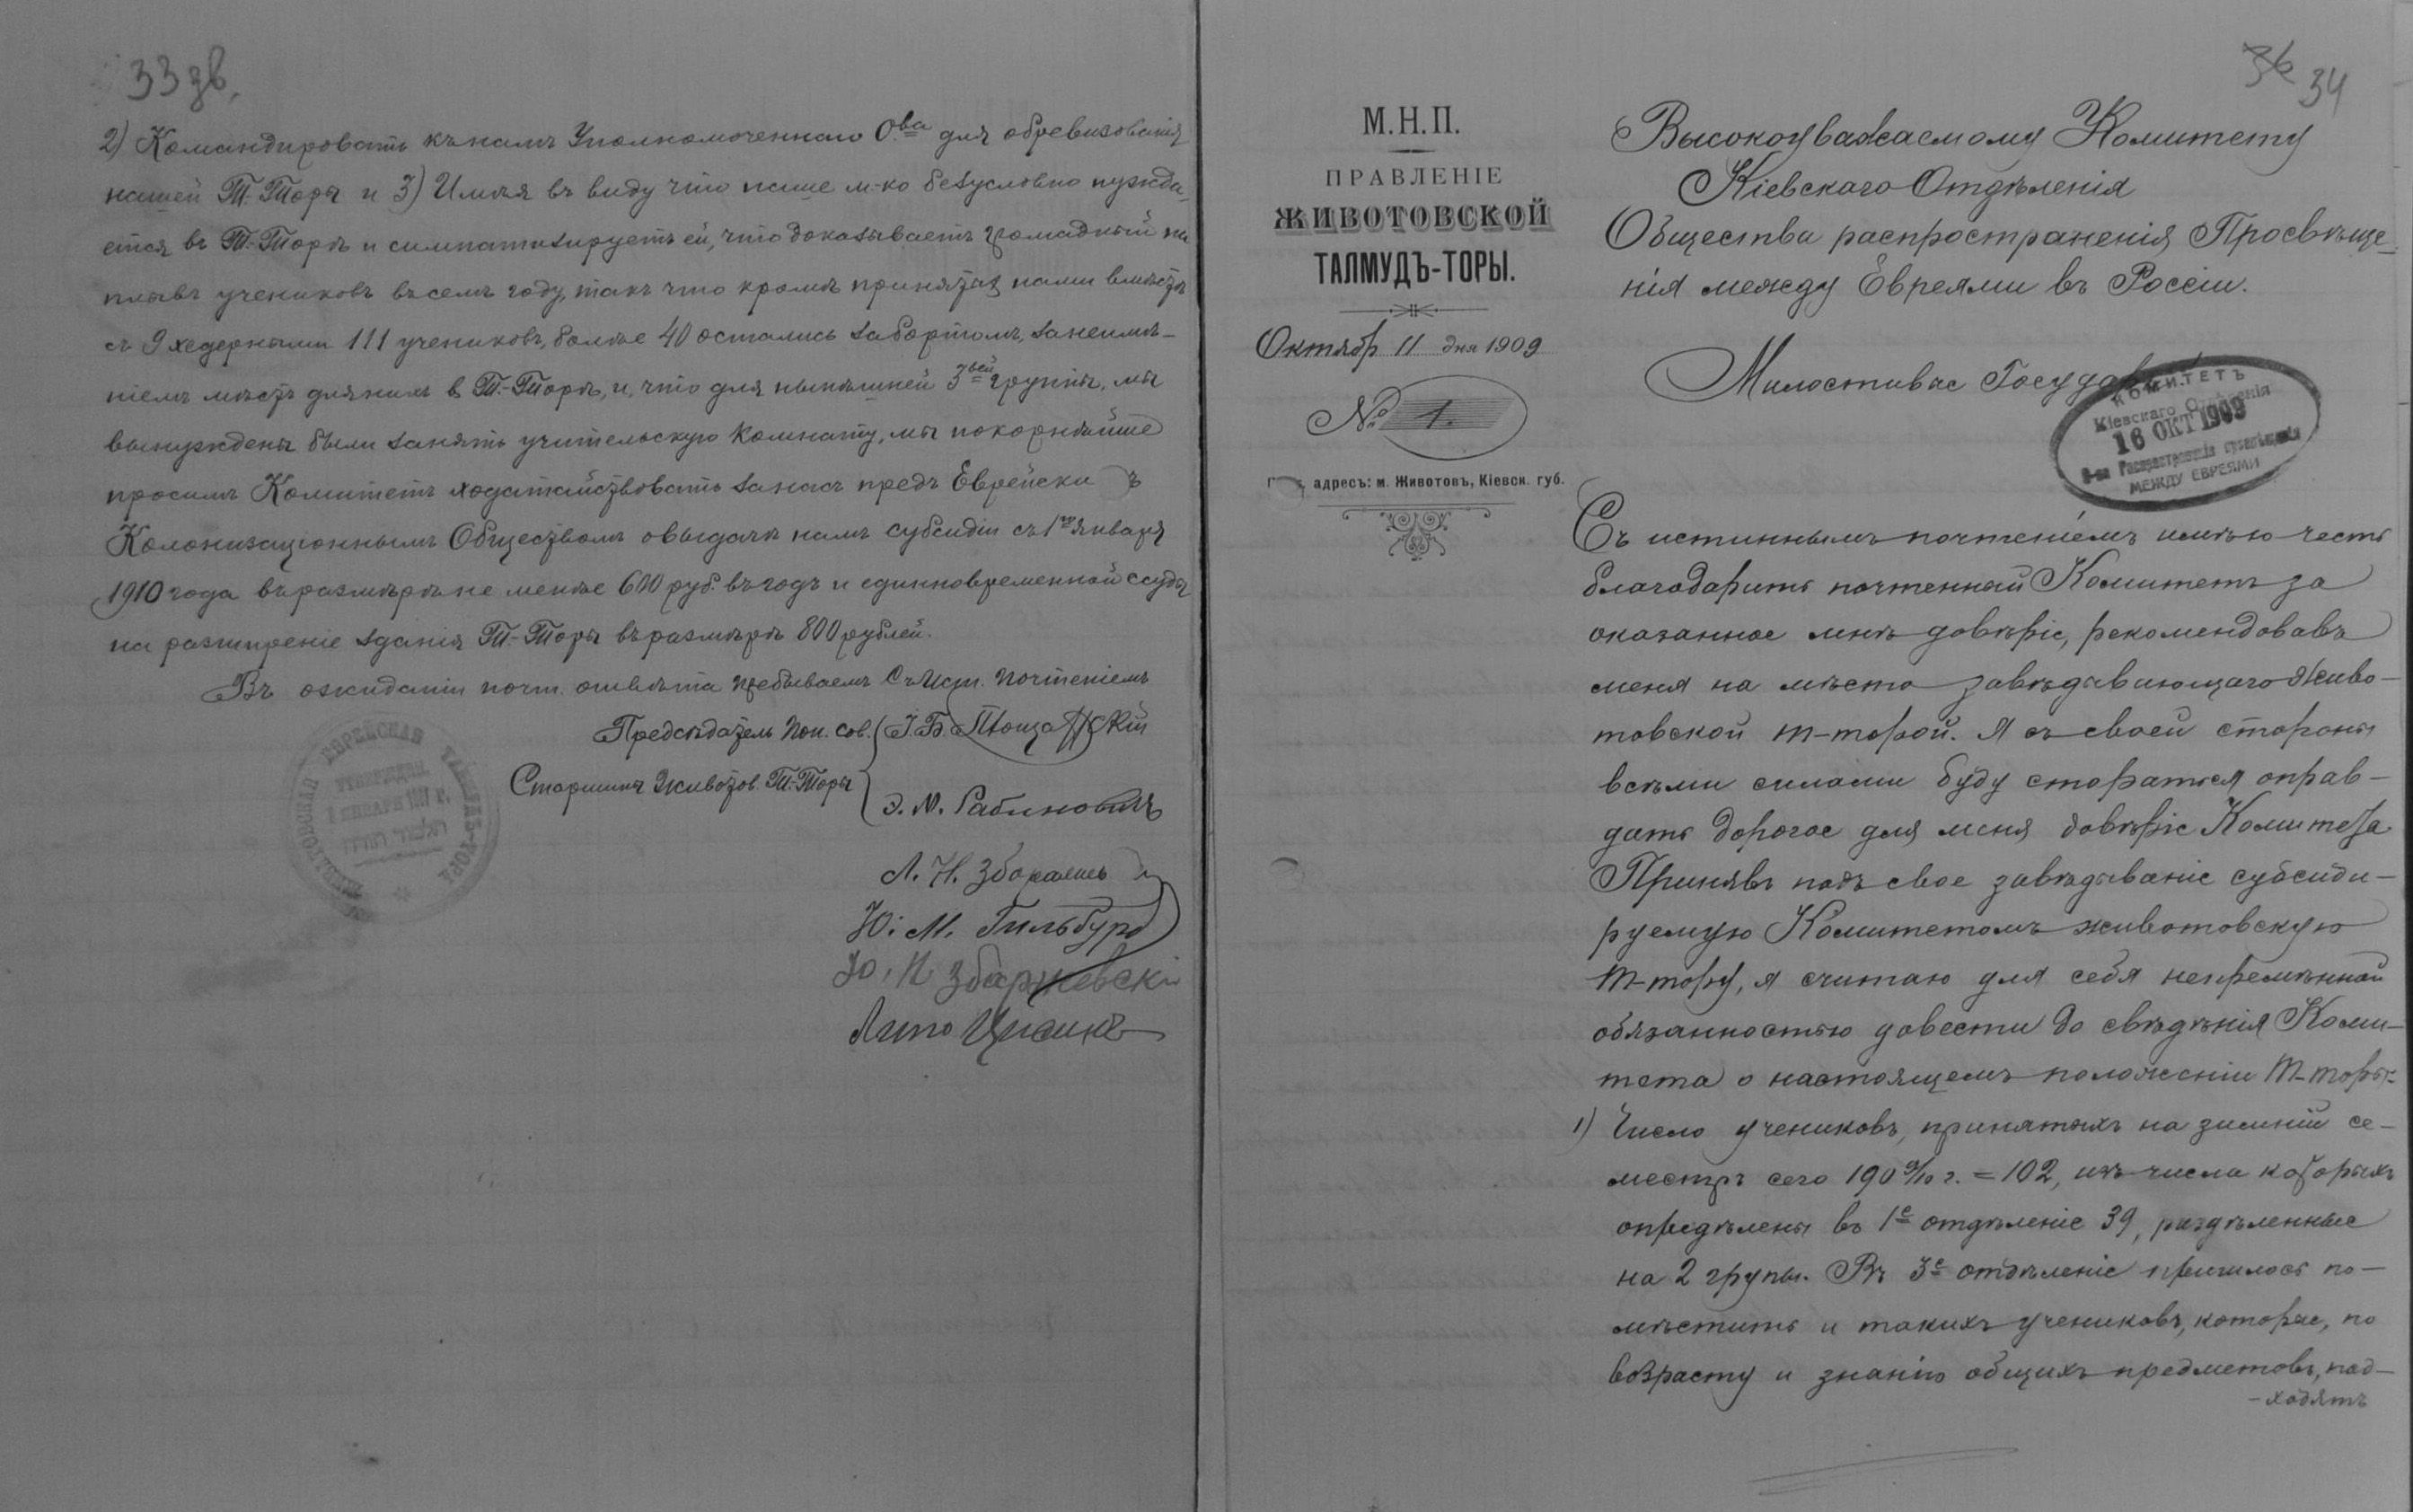 33 зв.
2) Командировать къ намъ Уполномоченнаго О-ва для обревизованія
нашей Т.-Торы и 3) Имѣя въ виду что наше м-ко безусловно нужда-
ется въ Т.-Торѣ и симпатизируетъ ей, что доказываетъ громадный на
плывъ учениковъ въ семъ году, такъ что кромѣ принятыхъ нами вмѣстѣ
съ 9 хедерными 111 учениковъ, болѣе 40 остались за бортомъ, за неимѣ-
ніемъ мѣстъ для нихъ в Т.-Торѣ, и, что для нынѣшней 3-вей группы, мы
вынуждены были занять учительскую комнату, мы покорнѣйше
просимъ Комитетъ ходатайствовать за насъ предъ Еврейски ъ
Колонизаціоннымъ Обществомъ о выдачѣ намъ субсидіи съ 1-го Января
1910 года въ размѣрѣ не менѣе 600 руб. въ годъ и единновременной ссуды
на разширеніе зданія Т.-Торы въ размѣрѣ 800 рублей.
Въ ожиданіи почт. отвѣта пребываемъ Съ Ист. Почтеніемъ
Предсѣдатель Поп. Сов. І. Б.
Старшины Животов. Т.-Торы
Э. М. Рабиновичъ
Л. Н.
Ю. М. Гильбурд
Ю. Збаржевскій
ЕВРЕЙСКАЯ ТАЛМУДЪ-ТОРА
1 ЯНВАРЯ
36 34
М.Н.П.
ПРАВЛЕНІЕ
ЖИВОТОВСКОЙ
ТАЛМУДЪ-ТОРЫ.
Октябр 11 дня 1909
№ 1.
адресъ: м. Животовъ, Кіевск. губ.
Высокоуважаемому Комитету
Кіевскаго Отдѣленія
Общества распространенія Просвѣще-
нія между Евреями въ Россіи.
Милостивые Государи
КОМИТЕТЪ
Кіевскаго Отдѣленія
16 ОКТ 1909
О-ва Распространенія просвѣщенія
МЕЖДУ ЕВРЕЯМИ
Съ истиннымъ почтеніемъ имѣю честь
благодарить почтенный Комитетъ за
оказанное мнѣ довѣріе, рекомендовавъ
меня на мѣсто завѣдывающаго Живо-
товской т-торой. Я съ своей стороны
всѣми силами буду старатся оправ-
дать дорогое для меня довѣріе Комитета
Принявъ подъ свое завѣдываніе субсиди-
руемую Комитетомъ животовскую
т-тору, я считаю для себя непремѣнной
обязанностью довести до свѣдѣнія Коми-
тета о настоящемъ положеніи т-торы:
1) Число учениковъ, принятыхъ на зимній се-
местръ сего 1909/10 г. = 102, изъ числа которыхъ
опредѣлены въ 1-е отдѣленіе 39, раздѣленные
на 2 групы. Въ 3-е отдѣленіе пришлось по-
мѣстить и такихъ учениковъ, которые, по
возрасту и знанію общихъ предметовъ, под-
-ходятъ